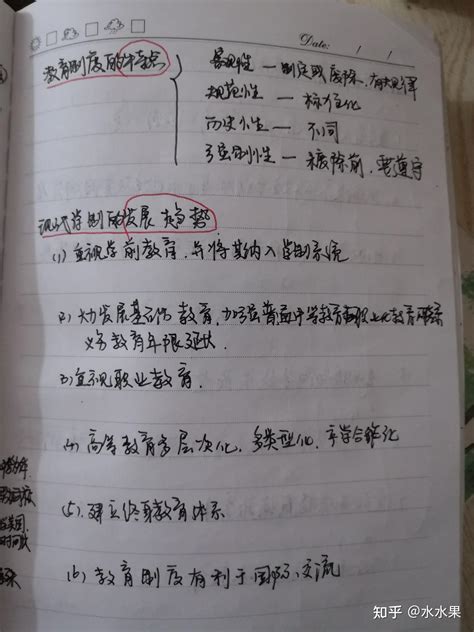 Date: / /
教育制度的特点
客观性 — 制定或废除,有规律
规范性 — 标准化
历史性 — 不同
强制性 — 未废除前,要遵守
现代学制的发展趋势
(1) 重视学前教育,并将其纳入学制系统
(2) 大力发展基础教育,加强普通中学教育和职业化教育
义务教育年限延长
(3) 重视职业教育.
(4) 高等教育多层次化,多类型化,产学合作化
(5) 建立终身教育体系
(6) 教育制度有利于国际交流
知乎 @水水果